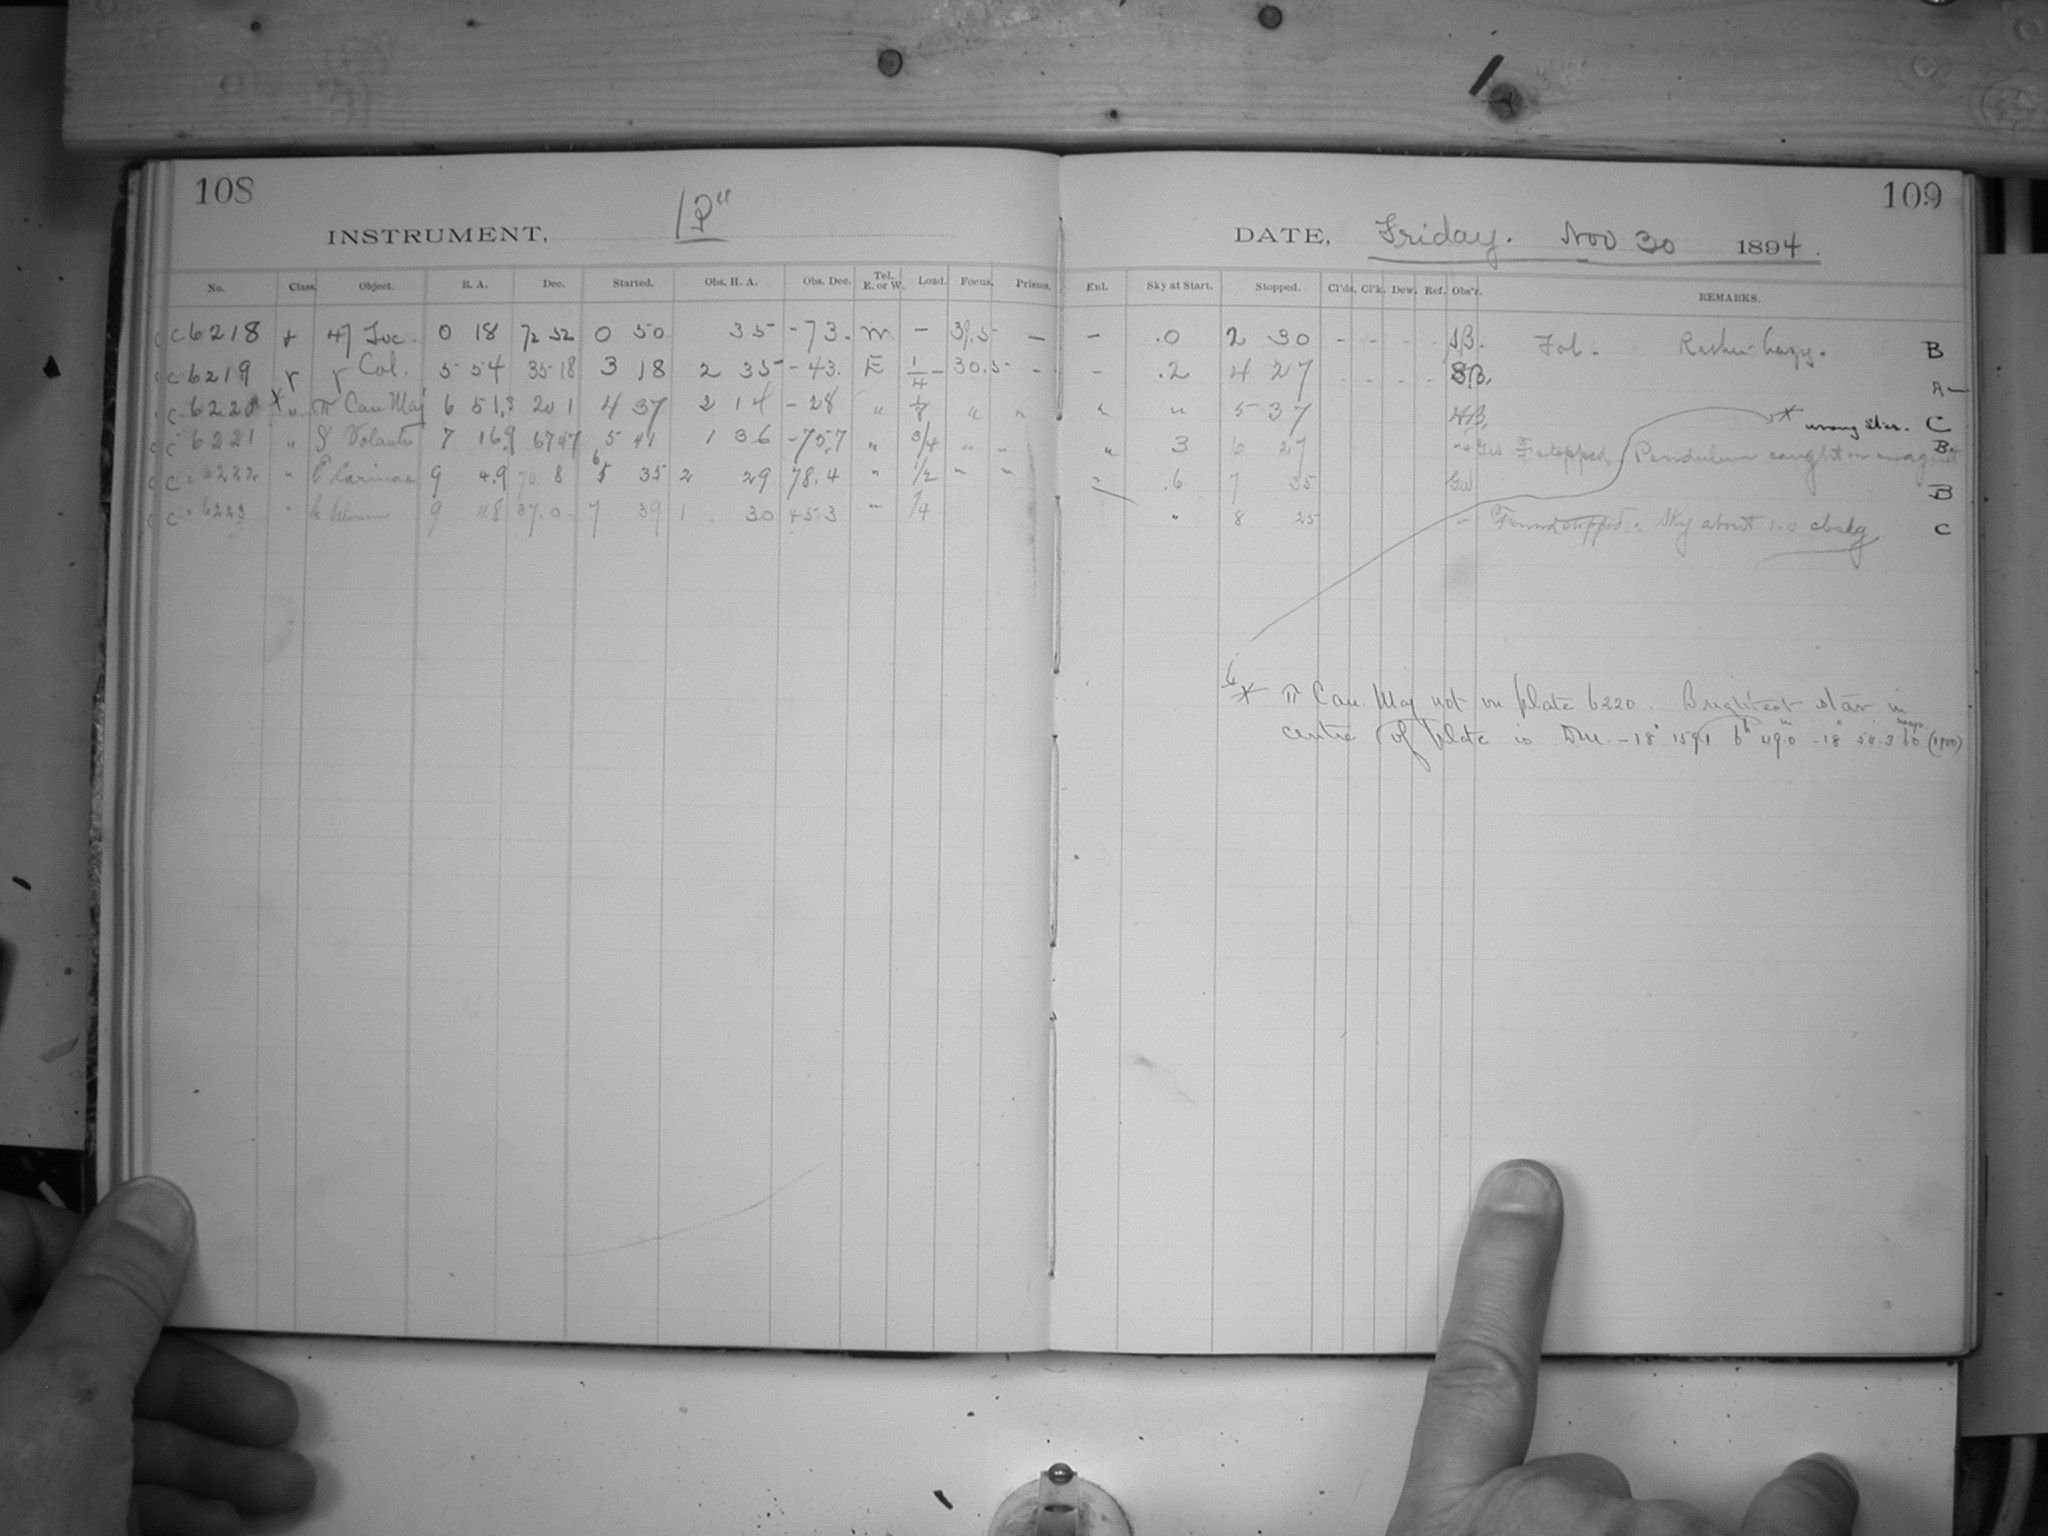 108
INSTRUMENT,
109
DATE, Friday. Nov 30 1894.
No. Class. Object. R. A. Dec. Started. Obs. H. A. Obs. Dec. Tel. E. or W. Load. Focus. Prisms. Enl. Sky at Start. Stopped. Cl'ds. Cl'k. Dew. Ref. Obs'r. REMARKS.
C 6218 47 Tuc. 0 18 72 52 0 50 35 -73. W. - 39.5 - - .0 2 30 - - - - SB. Rather hazy. B
C 6219 r r Col. 5 54 35 18 3 18 2 35 -43. E 1/4 - 30.5 - - .2 4 27 - - - - SB. A-
C 6220 * " π Can Maj 6 51.3 20 1 4 37 2 14 -28 " 1/8 " " " " 5 37 * wrong star. C
C 6221 " Volantis 7 16.9 67 47 5 41 1 36 -75.7 " 3/4 " " " 3 6 27 Pendulum caught on magnet B
C 6222 " Carinae 9 4.9 70 8 6 35 2 29 78.4 " 1/2 " " " .6 7 35 GW B
C 6223 " 9 37.0 7 39 1 30 45.3 " 1/4 " 8 25 " Found stopped. Sky about 1.0 cloudy C
* π Can. Maj not on plate 6220. Brightest star in
centre of plate is DM. -18° 1591 6h 49.0m -18° 54.3 (1900)